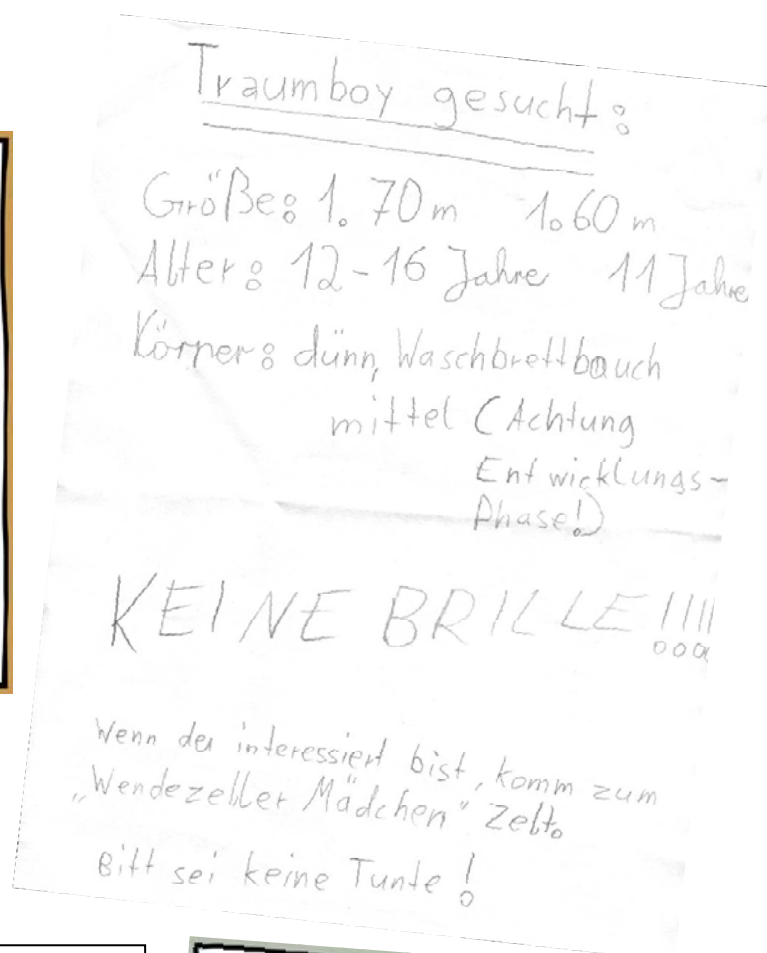 Traumboy gesucht:
Größe: 1.70m 1.60m
Alter: 12-16 Jahre 11 Jahre
Körper: dünn, Waschbrettbauch
mittel (Achtung
Entwicklungs-
Phase!)
KEINE BRILLE!!!!
Wenn du interessiert bist, komm zum
„Wendezeller Mädchen" Zelt.
Bitt sei keine Tunte!